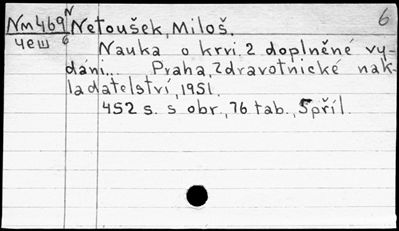 Nm469 N Netoušek, Miloš. 6
чеш 6
Nauka o krvi. 2 doplněné vy-
dáni... Praha, Zdravotnické nak-
ladatelství, 1951.
452 s. s obr., 76 tab., 5příl.